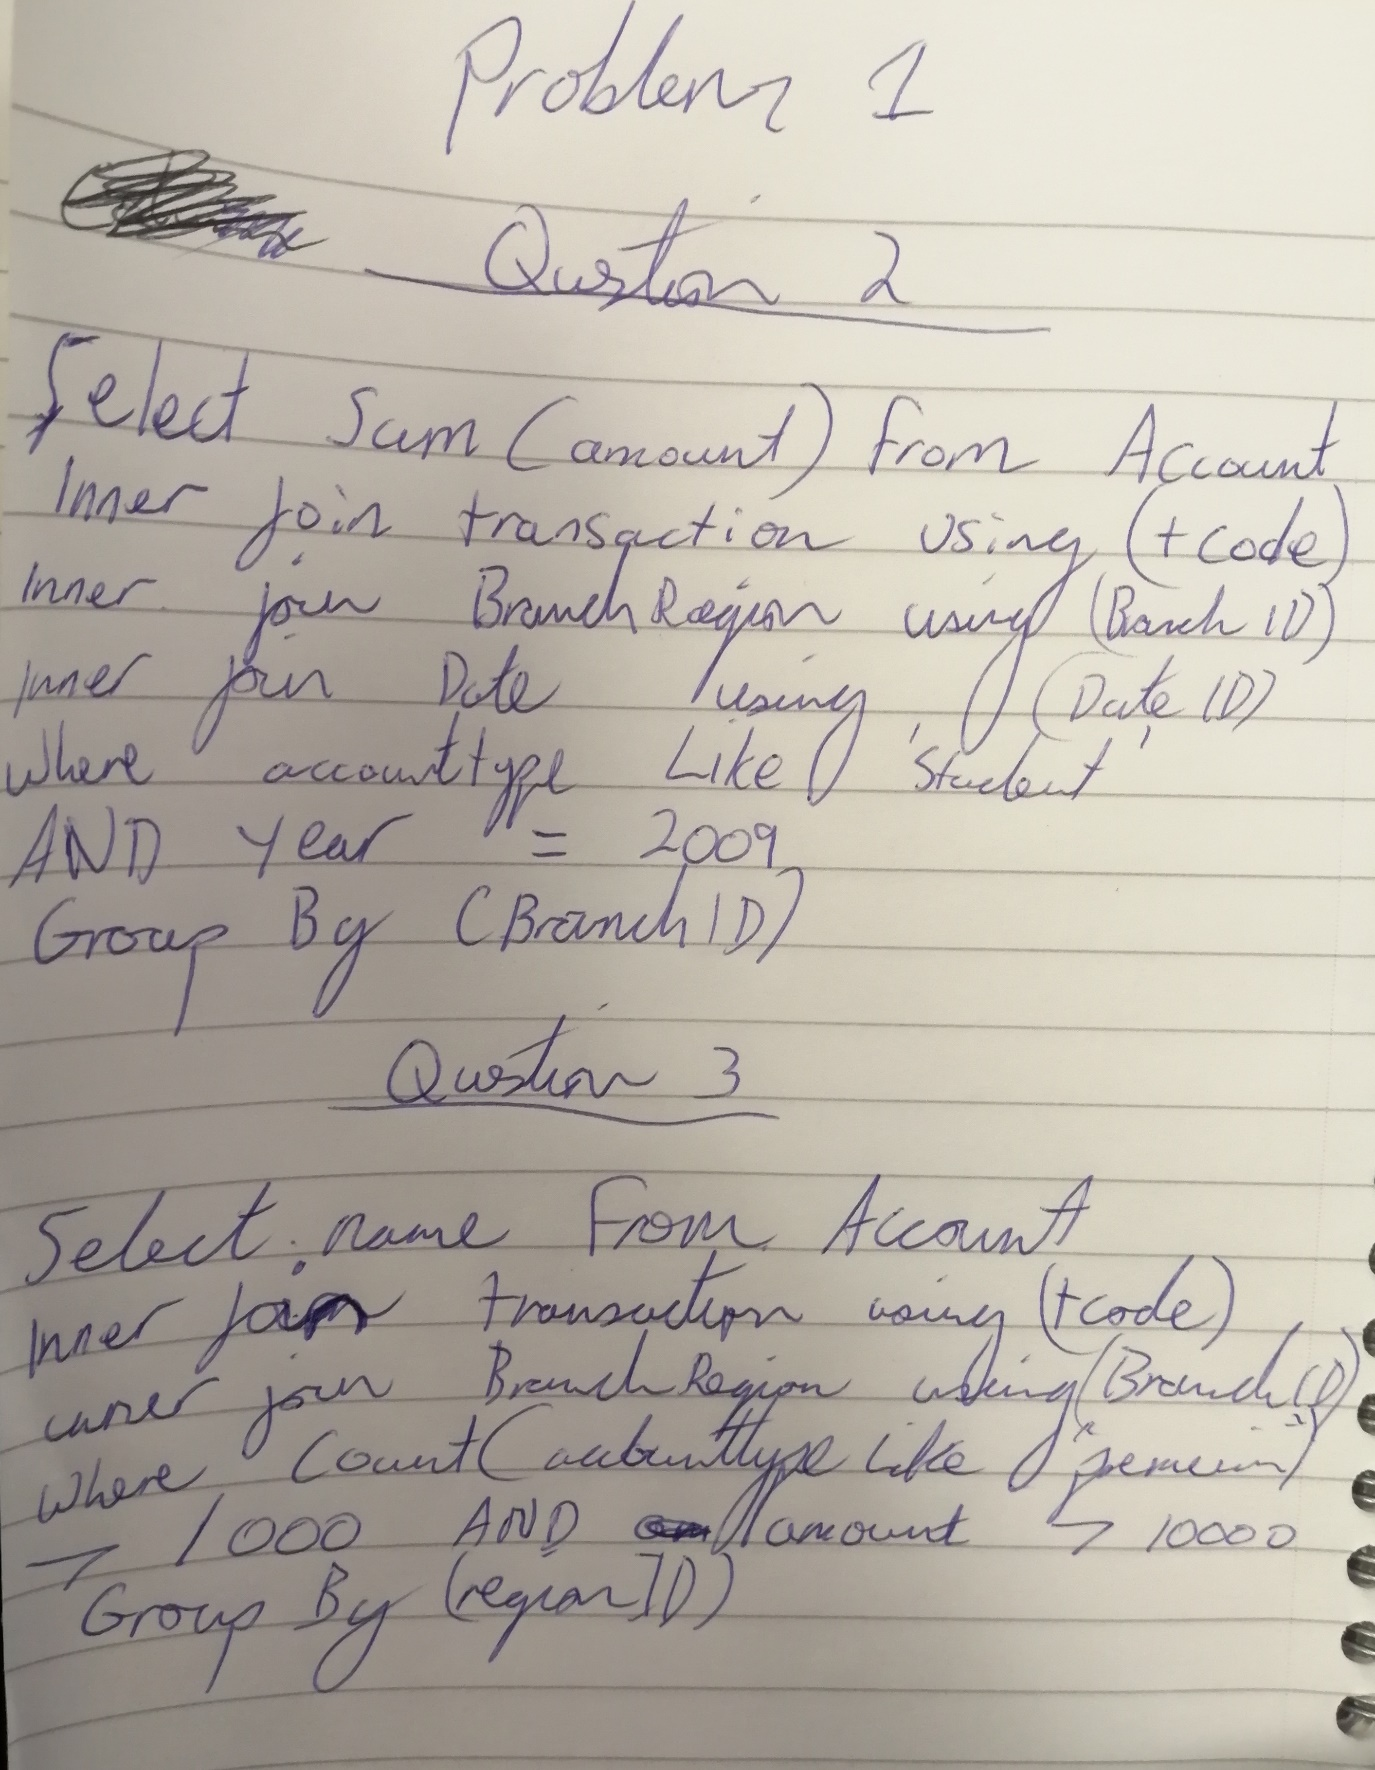 Problem 1
Question 2
Select Sum (amount) From Account
Inner join transaction using (tcode)
Inner join BranchRegion using (Banch ID)
Inner join Date using (Date ID)
Where accounttype Like 'Student'
AND Year = 2009
Group By (BranchID)
Question 3
Select name From Account
Inner join transaction using (tcode)
inner join BranchRegion using (BranchID)
Where Count (accounttype Like "premium")
> 1000 AND amount > 10000
Group By (regionID)